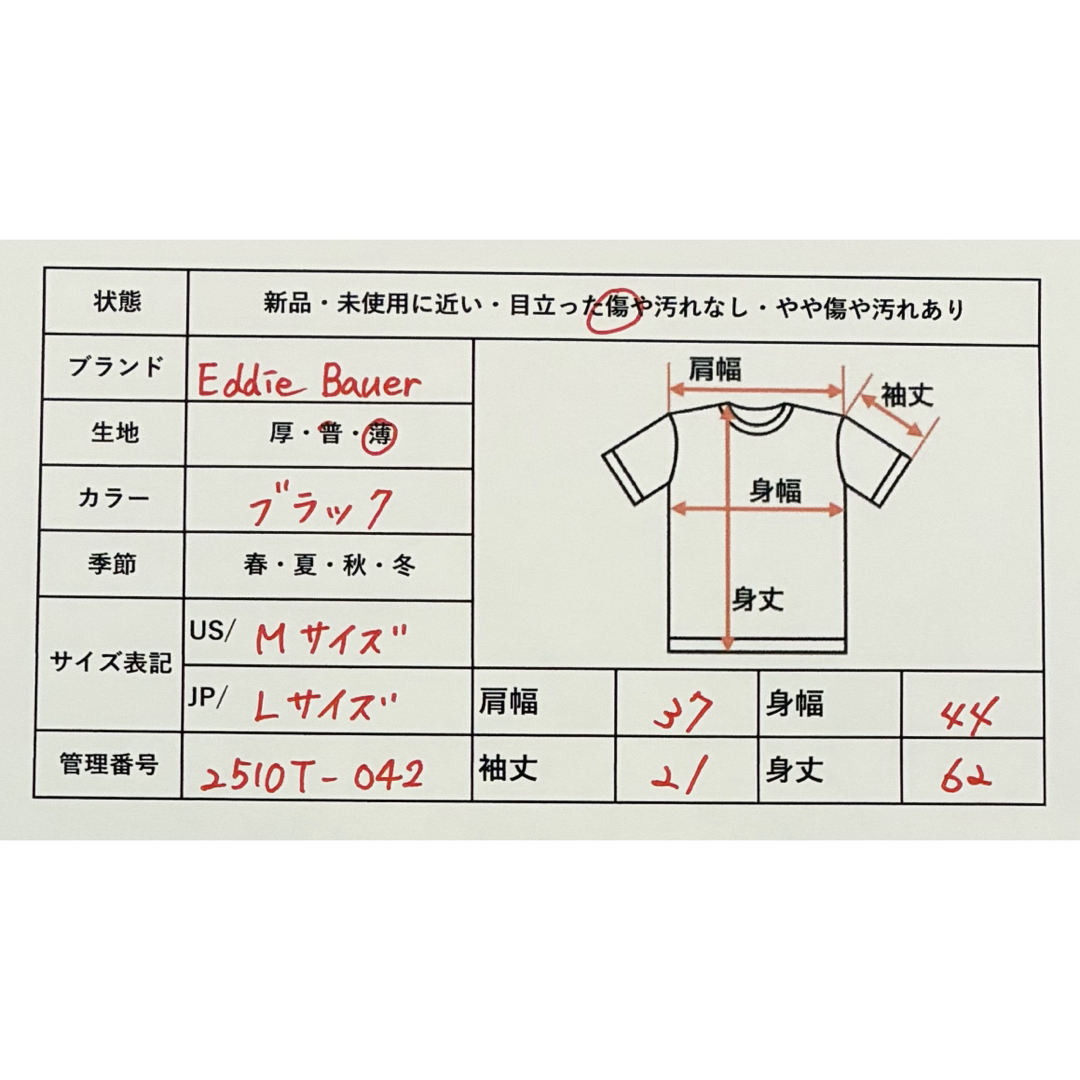 状態 新品・未使用に近い・目立った傷や汚れなし・やや傷や汚れあり
ブランド Eddie Bauer
生地 厚・普・薄
カラー ブラック
季節 春・夏・秋・冬
サイズ表記
US/ Mサイズ
JP/ Lサイズ
管理番号 2510T-042
肩幅
袖丈
身幅
身丈
肩幅 37 身幅 44
袖丈 21 身丈 62